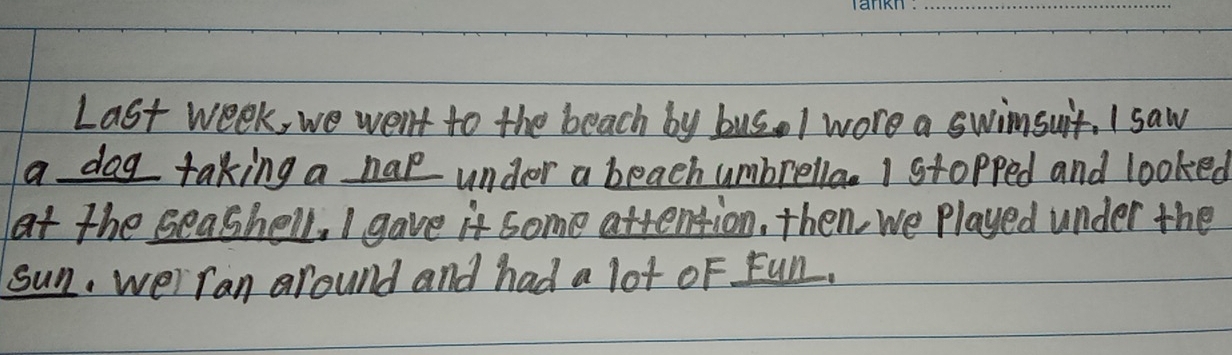 Tarikh : ..............................................
Last week, we went to the beach by bus. I wore a swimsuit. I saw
a dog taking a nap under a beach umbrella. I stopped and looked
at the seashell. I gave it some attention. then, we played under the
sun. we ran around and had a lot of fun.